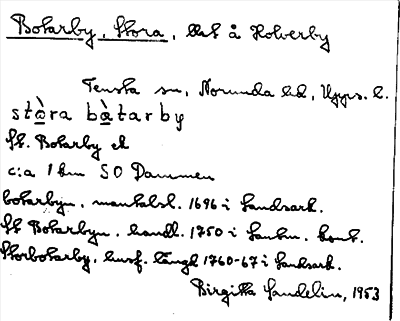 Botarby, Stora, äst å Holverby
Tensta sn, Norunda hd, Upps. l.
stɑ̀ra bɑ̀tarby
St. Botarby ek
c:a 1 km SO Dammen
botarbyn. mantalsl. 1696 i Landsark.
St Botarbyn. handl. 1750 i Lantm. kont.
Storbotarby, husf. längd 1760-67 i Landsark.
Birgitta Sandelin, 1953